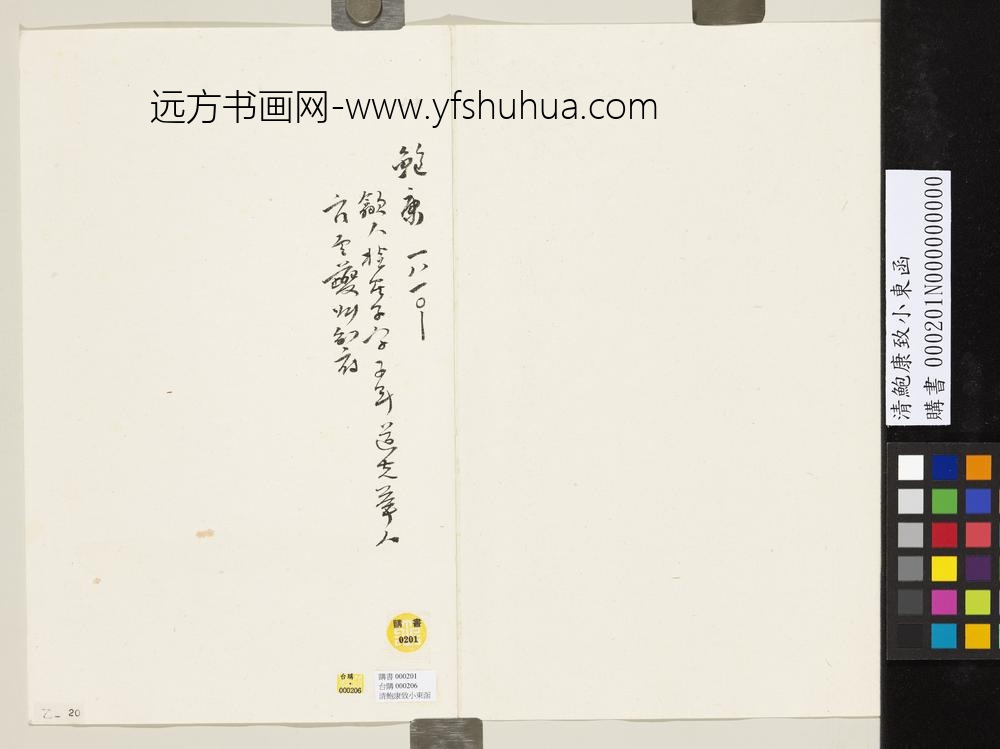 远方书画网-www.yfshuhua.com
鲍康 一八一〇—
歙人 子字子年 道光举人
官至夔州知府
購書
0201
台購
000206
購書 000201
台購 000206
清鮑康致小東函
乙- 20
清鮑康致小東函
購書 000201N000000000